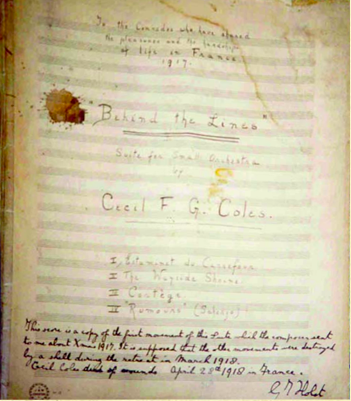 To the Comrades who have shared
the pleasures and the hardships
of life in France
1917.
"Behind the Lines"
Suite for Small Orchestra
by
Cecil F. G. Coles.
I Estaminet du Carrefour
II The Wayside Shrine
III Cortège
IV "Rumours"
This score is a copy of the first movement of this Suite which the composer sent
to me about Xmas 1917. It is supposed that the other movements were destroyed
by a shell during the retreat in March 1918.
Cecil Coles died of wounds April 28th 1918 in France.
G T Holst